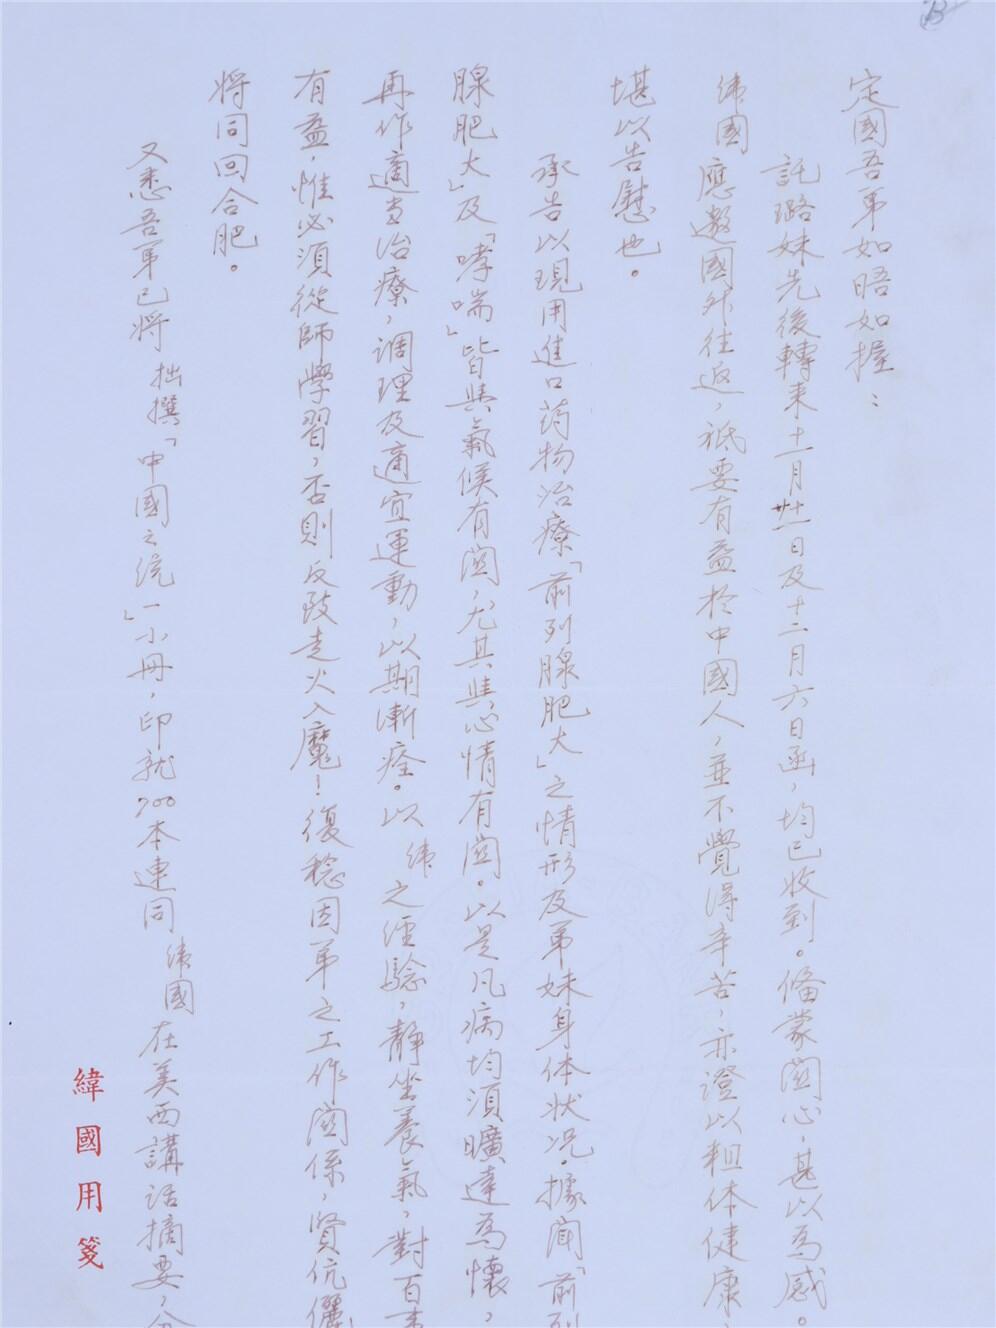 定國吾弟如晤如握：
託璐妹先後轉來十一月廿一日及十二月六日函，均已收到。備蒙關心，甚以為感。
緯國應邀國外往返，祇要有益於中國人，並不覺得辛苦，亦證以粗体健康，
堪以告慰也。
承告以現用進口药物治療「前列腺肥大」之情形及弟妹身体狀況。據聞「前列
腺肥大」及「哮喘」皆與氣候有關，尤其與心情有關。以是凡病均須曠達為懷，
再作適當治療，調理及適宜運動，以期漸痊。以緯之經驗，靜坐養氣，對百
有益，惟必須從師學習，否則反致走火入魔！復稔因弟之工作關係，賢伉儷
將同回合肥。
又悉吾弟已將拙撰「中國之統一」小冊，印就700本連同緯國在美西講話摘要，分
緯國用箋